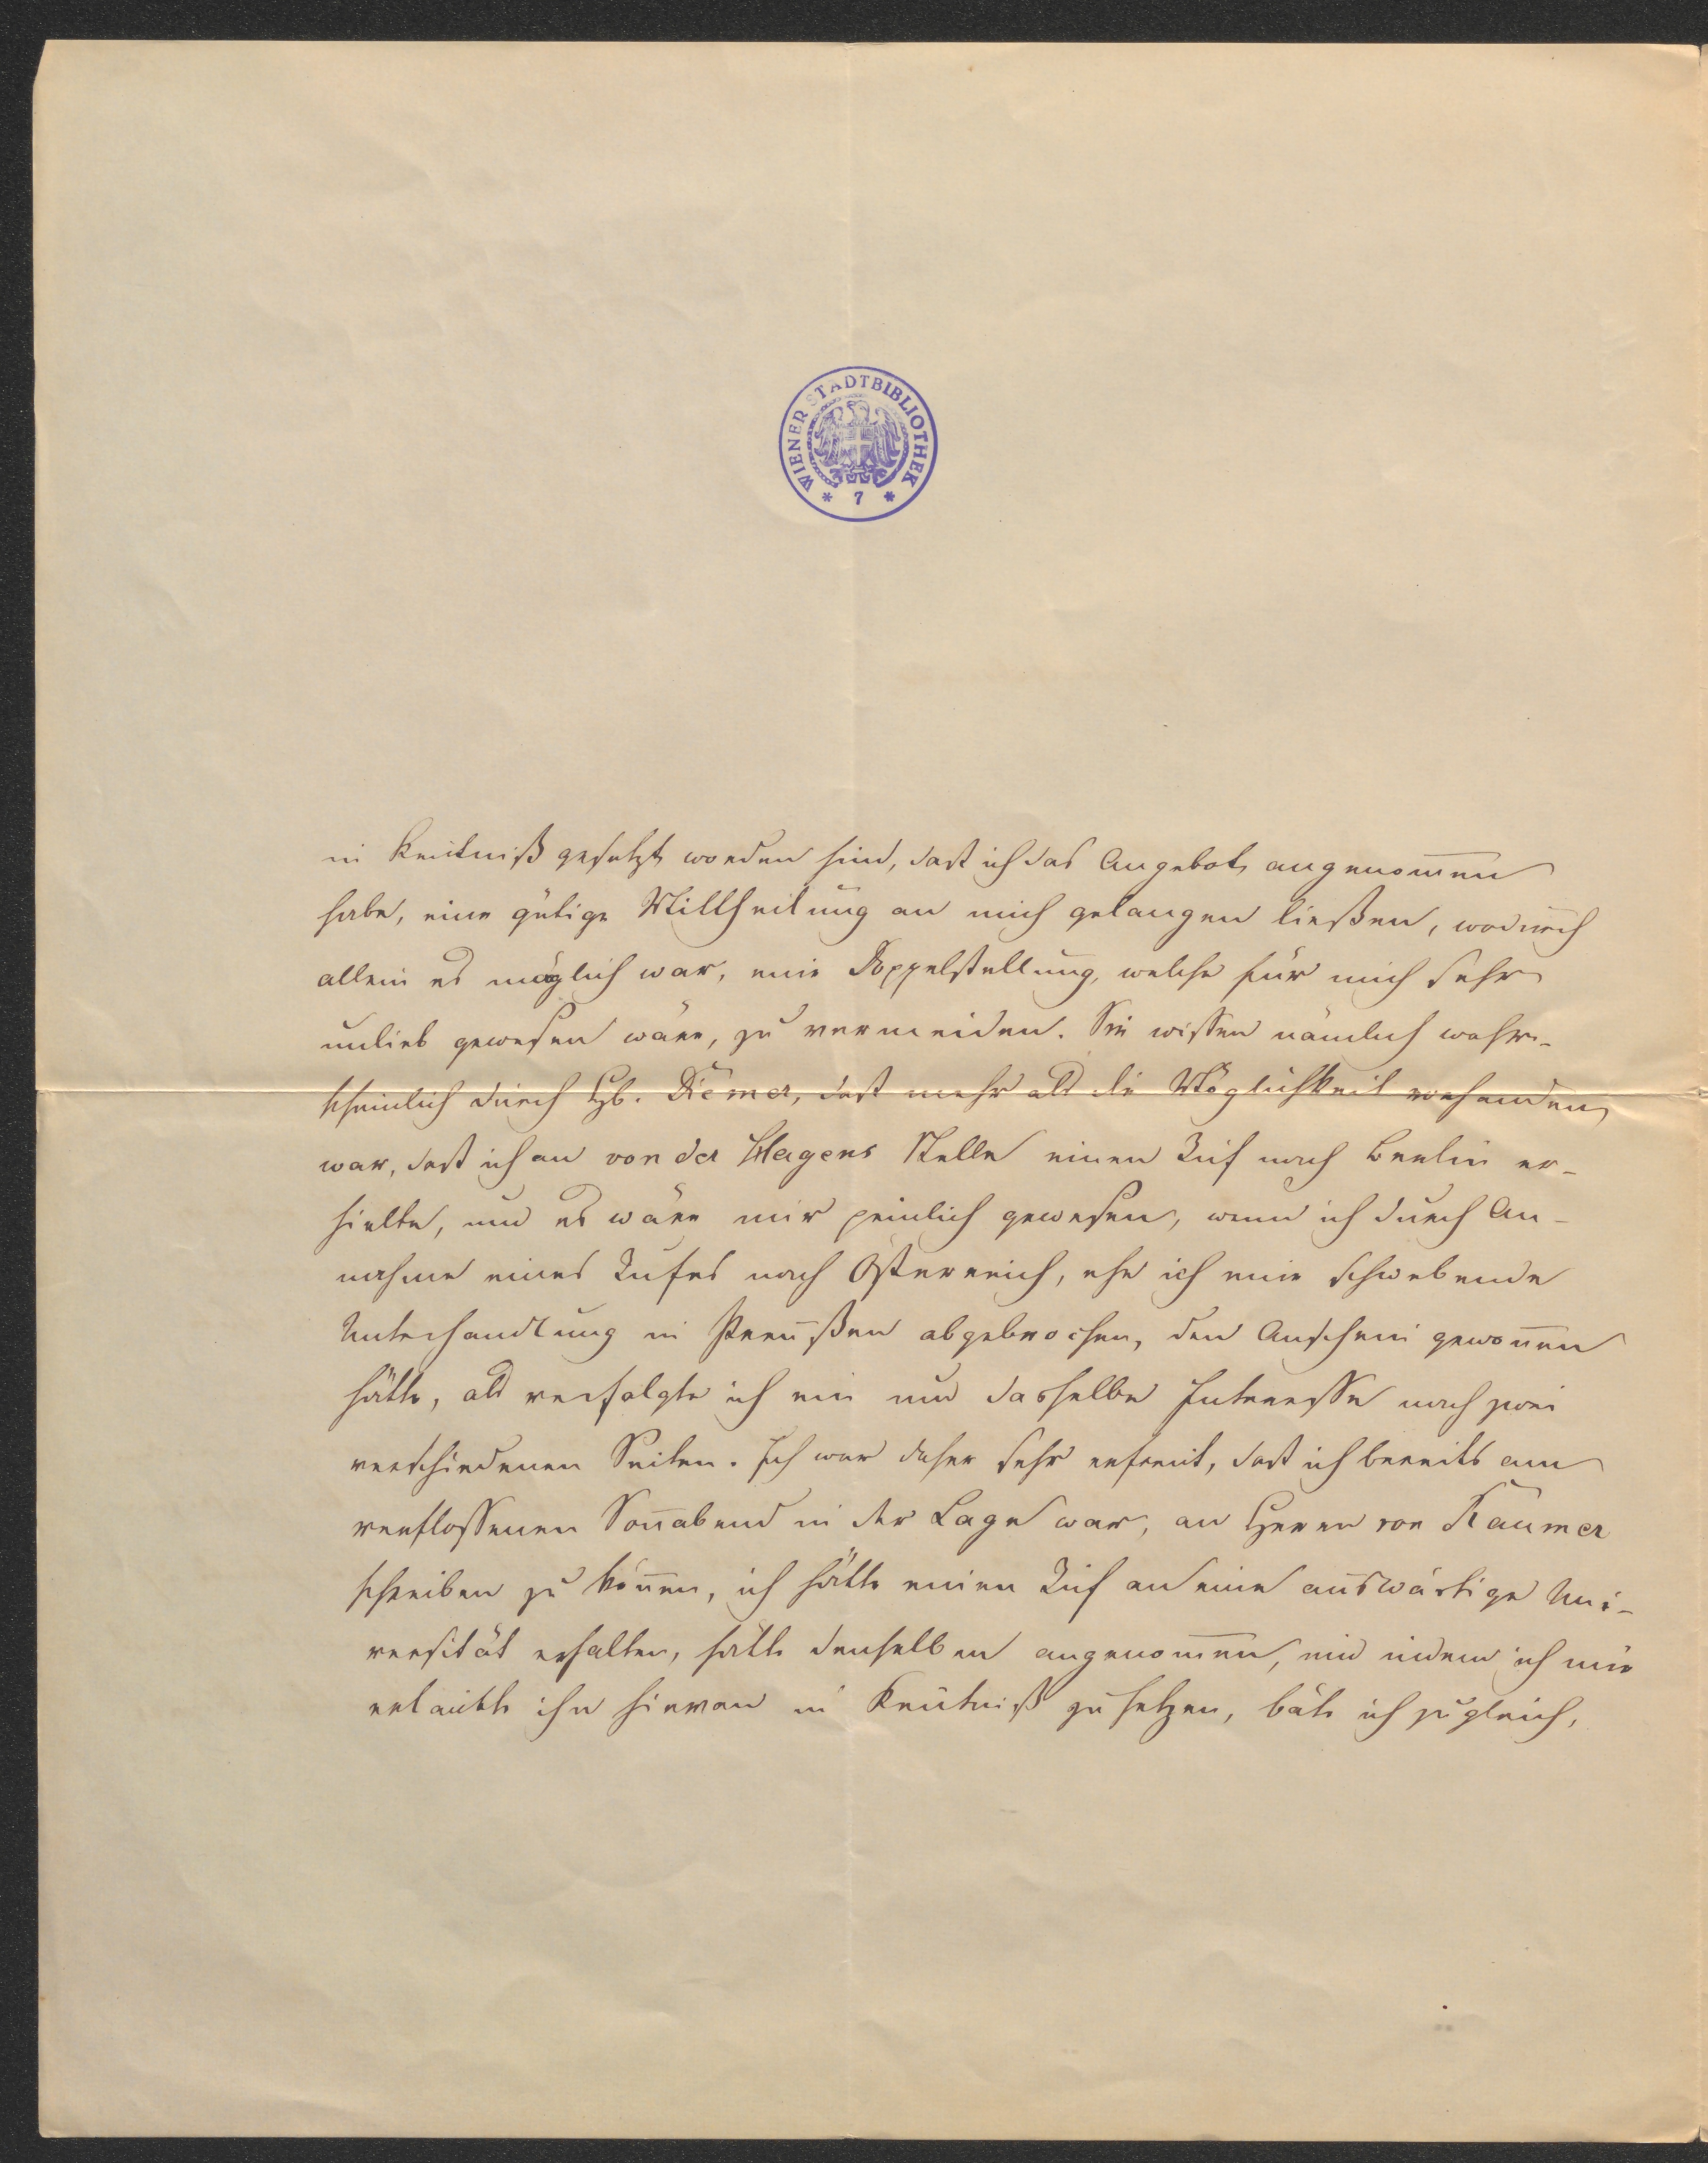 WIENER STADTBIBLIOTHEK
* 7 *
in Kenntniß gesetzt worden sind, daß ich das Angebot angenom̅en
habe, eine gütige Mittheilung an mich gelangen ließen, wodurch
allein es möglich war, eine Doppelstellung, welche für mich sehr
unlieb gewesen wäre, zu vermeiden. Sie wissen nämlich wahr-
scheinlich durch Hb. Diemer, daß mehr als die Möglichkeit vorhanden
war, daß ich an von der Hagens Stelle einen Ruf nach Berlin er-
hielte, und es wäre mir peinlich gewesen, wenn ich durch An-
nahme eines Rufes nach Österreich, ehe ich eine schwebende
Unterhandlung in Preußen abgebrochen, den Anschein gewon̅en
hätte, als verfolgte ich ein und dasselbe Interesse nach zwei
verschiedenen Seiten. Ich war daher sehr erfreut, daß ich bereits am
verflossenen Son̅abend in der Lage war, an Herrn von Raumer
schreiben zu kön̅en, ich hätte einen Ruf an eine auswärtige Uni-
versität erhalten, hätte denselben angenom̅en, und indem ich mir
erlaubte ihn hiervon in Ken̅tniß zu setzen, bäte ich zugleich,